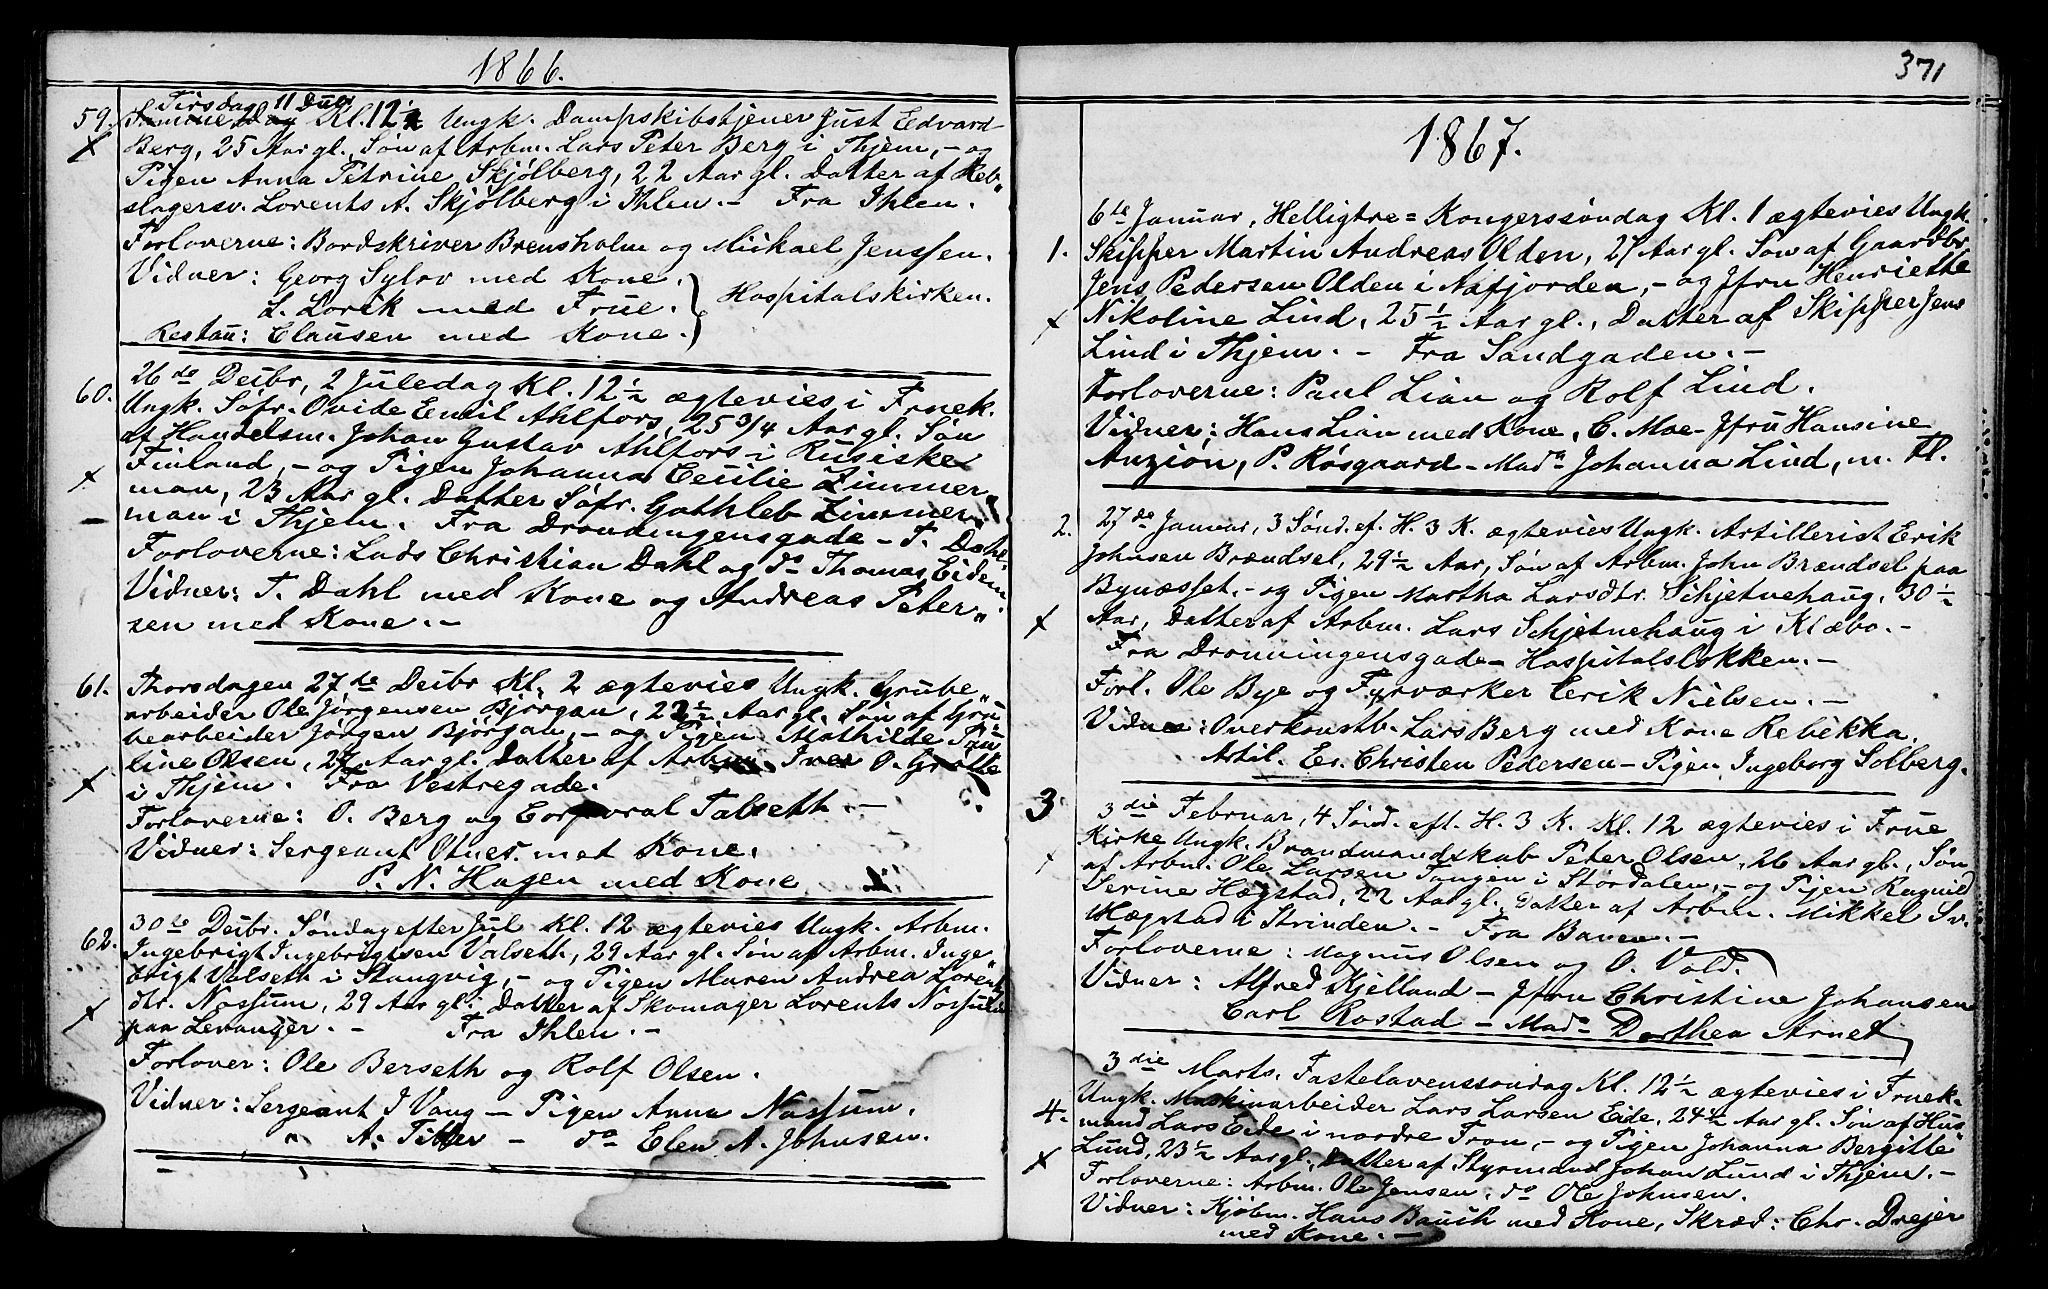 1866.
Tirsdag 11 Decbr
59. Samme Dag Kl. 12 1/2 Ungk. Dampskibstjener Just Edvard
Berg, 25 Aar gl. Søn af Arbm. Lars Peter Berg i Thjem, - og
Pigen Anna Petrine Skjølberg, 22 Aar gl. Datter af Reb„
slagersv. Lorents A. Skjølberg i Ihlen. - Fra Ihlen.
Forloverne: Bordskriver Brensholm og Mickael Jenssen.
Vidner: Georg Sylov med Kone.
L. Lorck med Frue. Hospitalskirken.
Restau: Clausen med Kone.
60. 26de Decbr, 2 Juledag Kl. 12 1/2 ægtevies i Fruek.
Ungk. Søfr. Ovide Emil Ahlfors, 25 3/4 Aar gl. Søn
af Handelsm. Johan Gustav Ahlfors i Rusiske
Finland, - og Pigen Johanna Cecilie Zimmer„
man, 23 Aar gl. Datter Søfr. Gathleb Zimmer„
man i Thjem. Fra Dronningensgade - T. Dahl
Forloverne: Lads Christian Dahl og do Thomas Eidem.
Vidner: T. Dahl med Kone og Andreas Peter„
sen med Kone. -
61. Thorsdagen 27de Decbr Kl. 2 ægtevies Ungk. Grube„
arbeider Ole Jørgensen Bjørgan, 22 1/2 Aar gl. Søn af Gru
bearbeider Jørgen Bjørgan, - og Pigen Mathilde Pau
line Olsen, 27 Aar gl. Datter af Arbm. Iver O. Grøtte
i Thjem. Fra Vestregade.
Forloverne: O. Berg og Corporal Talseth. -
Vidner: Sergeant Otnes med Kone.
P. N. Hagen med Kone
62. 30te Decbr. Søndag efter Jul Kl. 12 ægtevies Ungk. Arbm.
Ingebrigt Ingebrigtsen Valseth, 29 Aar gl. Søn af Arbm. Inge„
brigt Valseth i Stangvig, - og Pigen Maren Andrea Lorents
dtr. Nossum, 29 Aar gl. Datter af Skomager Lorents Nossum
paa Levanger. - Fra Ihlen. -
Forlover: Ole Berseth og Rolf Olsen.
Vidner: Sergeant J Vang - Pigen Anna Nossum.
„ A. Titter - do Elen A. Johnsen.
371
1867.
6te Januar, Helligtre=Kongerssøndag Kl. 1 ægtevies Ungk.
1. Skipper Martin Andreas Olden, 27 Aar gl. Søn af Gaardbr.
Jens Pedersen Olden i Næfjorden, - og Jfru Henriette
Nikoline Lind, 25 1/2 Aar gl., Datter af Skipper Jens
Lind i Thjem. - Fra Sandgaden. -
Forloverne: Paul Lian og Rolf Lind.
Vidner: Hans Lian med Kone, C. Moe - Jfru Hansine
Anzion, P. Røsgaard - Mada Johanna Lind, m. Fl.
2. 27de Januar, 3 Sønd. ef. H. 3 K. ægtevies Ungk. Artillerist Erik
Johnsen Brændsel, 29 1/2 Aar, Søn af Arbm. John Brændsel paa
Bynæsset, - og Pigen Martha Larsdtr. Schjetnehaug, 30 1/2
Aar, Datter af Arbm. Lars Schjetnehaug i Klæbo. -
Fra Dronningensgade - Hospitalsløkken. -
Forl. Ole Bye og Fyrværker Eerik Nielsen. -
Vidne: Overkonstb. Lars Berg med Kone Rebekka.
Artil. Er. Christen Pedersen - Pigen Ingeborg Solberg.
3 3die Februar, 4 Sønd. eft. H. 3 K. Kl. 12 ægtevies i Frue
Kirke Ungk. Brandmandskab Peter Olsen, 26 Aar gl., Søn
af Arbm. Ole Larsen Tangen i Størdalen, - og Pigen Ragnild
Serine Hægstad, 22 Aar gl., Datter af Arbm. Mikkel Sv.
Hægstad i Strinden. - Fra Banen. -
Forloverne: Magnus Olsen og O. Vold.
Vidner: Alfred Kjelland - Jfru Christine Johansen
Carl Rostad - Mada Dorthea Arnet
3die Marts. Fastelavenssøndag Kl. 12 1/2 ægtevies i Fruek.
4. Ungk. Maskinarbeider Lars Larsen Eide, 24 1/2 Aar gl. Søn af Hus
mand Lars Eide i nordre Tron, - og Pigen Johanna Bergitte
Lund, 23 1/2 Aar gl., Datter af Styrmand Johan Lund i Thjem. -
Forloverne: Arbm. Ole Jensen, do Ole Johnsen.
Vidner: Kjøbm. Hans Bauck med Kone, Skræd: Chr. Drejer
med Kone. -